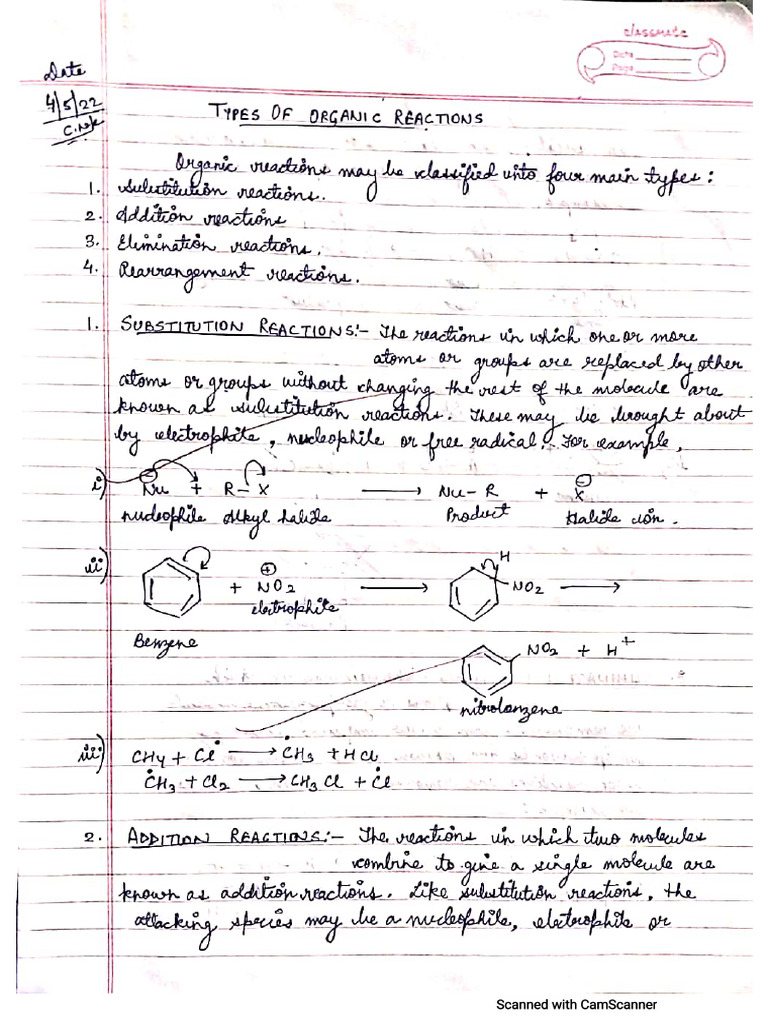 classmate
Date
Page
Date
4/5/22
C.W
TYPES OF ORGANIC REACTIONS
Organic reactions may be classified into four main types:
1. Substitution reactions.
2. Addition reactions
3. Elimination reactions.
4. Rearrangement reactions.
1. SUBSTITUTION REACTIONS:- The reactions in which one or more
atoms or groups are replaced by other
atoms or groups without changing the rest of the molecule are
known as substitution reactions. These may be brought about
by electrophile, nucleophile or free radical. For example,
i) ⊖Nu + R-X ⟶ Nu-R + X⊖
nucleophile Alkyl halide Product Halide ion.
ii) + ⊕NO2 ⟶ H NO2 ⟶
electrophile
Benzene
NO2 + H+
nitrobenzene
iii) CH4 + Cl• ⟶ •CH3 + HCl
•CH3 + Cl2 ⟶ CH3Cl + •Cl
2. ADDITION REACTIONS:- The reactions in which two molecules
combine to give a single molecule are
known as addition reactions. Like substitution reactions, the
attacking species may be a nucleophile, electrophile or
Scanned with CamScanner